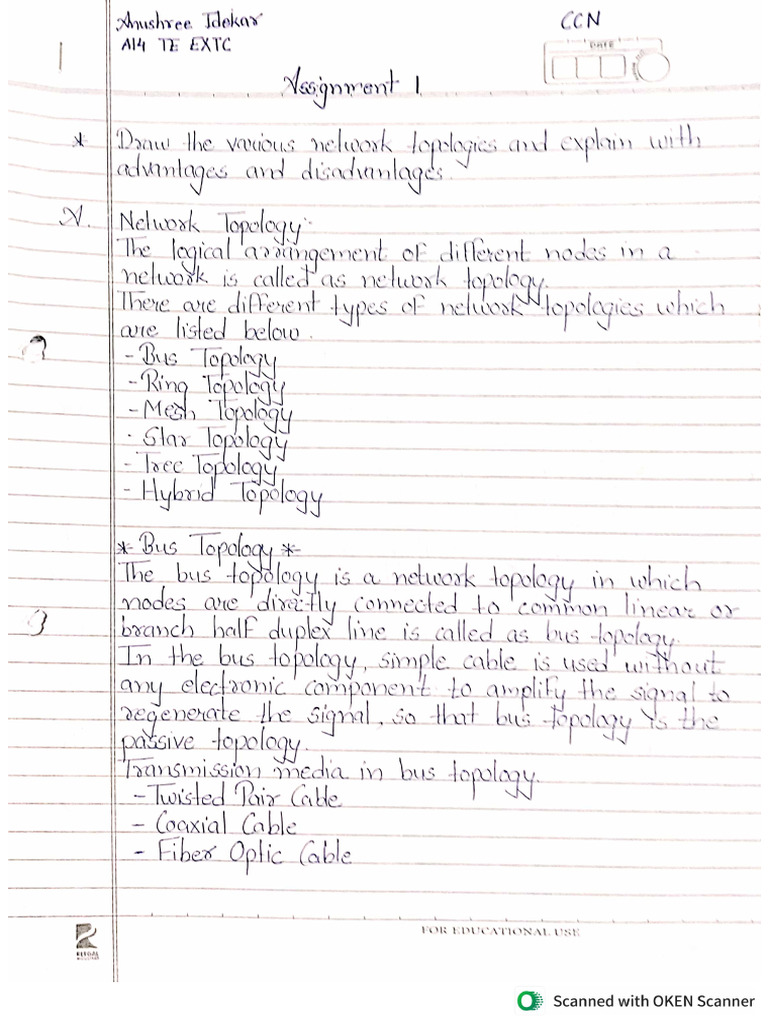 Anushree Idekar
CCN
A14 TE EXTC
DATE
Assignment 1.
* Draw the various network topologies and explain with
advantages and disadvantages.
A. Network Topology:-
The logical arrangement of different nodes in a
network is called as network topology.
There are different types of network topologies which
are listed below.
- Bus Topology
- Ring Topology
- Mesh Topology
- Star Topology
- Tree Topology
- Hybrid Topology
*- Bus Topology *-
The bus topology is a network topology in which
nodes are directly connected to common linear or
branch half duplex line is called as bus topology.
In the bus topology, simple cable is used without
any electronic component to amplify the signal to
regenerate the signal, so that bus topology is the
passive topology.
Transmission media in bus topology.
- Twisted Pair Cable
- Coaxial Cable
- Fiber Optic Cable
FOR EDUCATIONAL USE
Scanned with OKEN Scanner